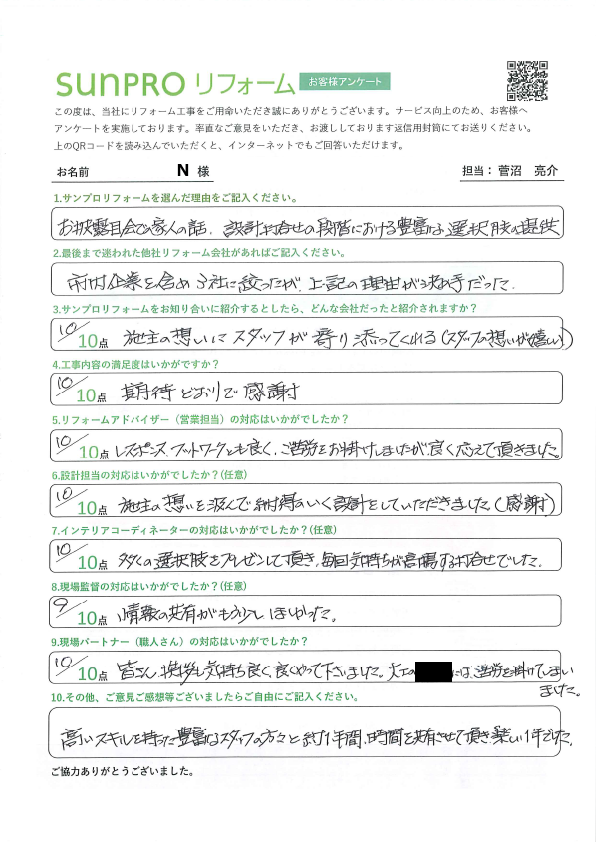 SUNPRO リフォーム お客様アンケート
この度は、当社にリフォーム工事をご用命いただき誠にありがとうございます。サービス向上のため、お客様へ
アンケートを実施しております。率直なご意見をいただき、お渡ししております返信用封筒にてお送りください。
上のQRコードを読み込んでいただくと、インターネットでもご回答いただけます。
お名前 N 様 担当：菅沼 亮介
1.サンプロリフォームを選んだ理由をご記入ください。
お披露目会での家人の話、設計打合せの段階における豊富な選択肢の提供
2.最後まで迷われた他社リフォーム会社があればご記入ください。
市内企業を含め3社に絞ったが、上記の理由が決め手だった。
3.サンプロリフォームをお知り合いに紹介するとしたら、どんな会社だったと紹介されますか？
10/10点 施主の想いにスタッフが寄り添ってくれる(スタッフの想いが嬉しい)
4.工事内容の満足度はいかがですか？
10/10点 期待どおりで感謝
5.リフォームアドバイザー（営業担当）の対応はいかがでしたか？
10/10点 レスポンス、フットワークとも良く、ご苦労をお掛けしましたが良く応えて頂きました。
6.設計担当の対応はいかがでしたか？(任意)
10/10点 施主の想いを汲んで納得のいく設計をしていただきました(感謝)
7.インテリアコーディネーターの対応はいかがでしたか？(任意)
10/10点 多くの選択肢をプレゼンして頂き、毎回気持ちが高揚する打合せでした。
8.現場監督の対応はいかがでしたか？(任意)
9/10点 情報の共有がもう少しほしかった。
9.現場パートナー（職人さん）の対応はいかがでしたか？
10/10点 皆さん、挨拶も気持ち良く、良くやって下さいました。大工の には、ご苦労を掛けてしまい
ました。
10.その他、ご意見ご感想等ございましたらご自由にご記入ください。
高いスキルを持った豊富なスタッフの方々と約1年間、時間を共有させて頂き楽しい1年でした。
ご協力ありがとうございました。